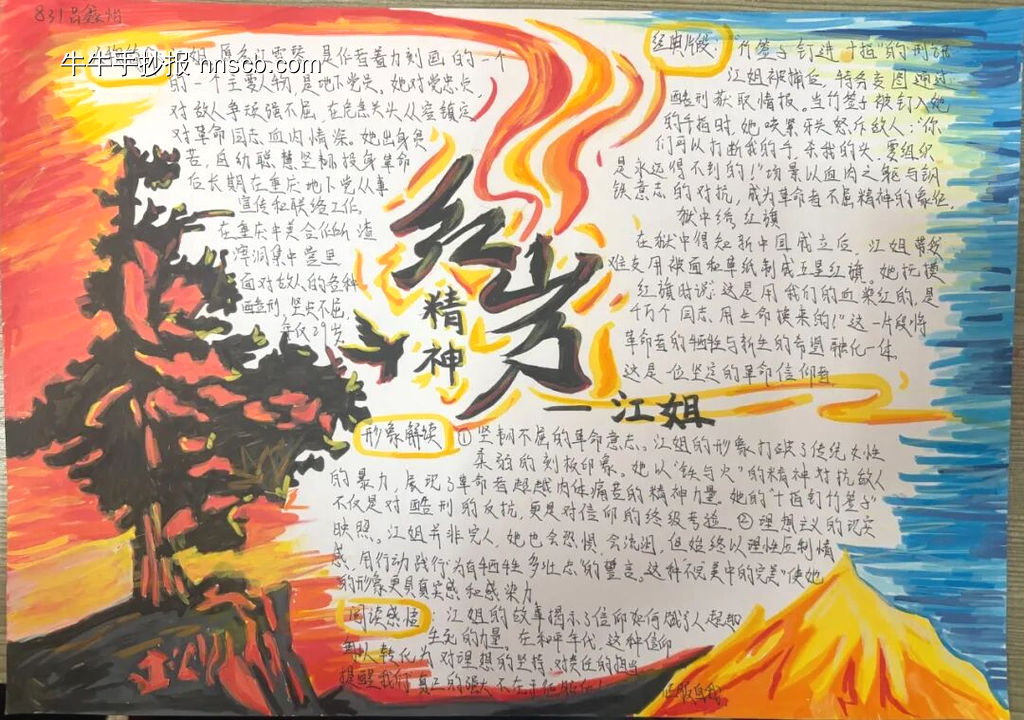 831吕
牛牛手抄报 nnscb.com
江姐 原名江雪琴 是作者着力刻画的一个
的一个主要人物 是地下党员。她对党忠贞,
对敌人争顽强不屈,在危急关头从容镇定
对革命同志血肉情深。她出身贫
苦,自幼聪慧坚韧,投身革命
后长期在重庆地下党从事
宣传和联络工作。
在重庆中美合作所渣
滓洞集中营里
面对敌人的各种
酷刑,坚贞不屈,
年仅29岁
经典片段:"竹签子钉进十指"的刑讯
江姐被捕后,特务妄图通过
酷刑获取情报。当竹签子被钉入她
的手指时,她咬紧牙关怒斥敌人:"你
们可以打断我的手,杀我的头,要组织
是永远得不到的!"场景以血肉之躯与钢
铁意志的对抗,成为革命者不屈精神的象征。
狱中绣红旗
在狱中得知新中国成立后,江姐带领
难友用被面和草纸制成五星红旗。她抚摸
红旗时说:"这是用我们的血染红的,是
千万个同志用生命换来的!"这一片段将
革命者的牺牲与新生的希望融化一体
这是一位坚定的革命信仰者
红岩
精神
——江姐
形象解读 ①坚韧不屈的革命意志。江姐的形象打破了传统女性
柔弱的刻板印象。她以"铁与火"的精神对抗敌人
的暴力,展现了革命者超越肉体痛苦的精神力量 她的"十指钉竹签子"
不仅是对酷刑的反抗,更是对信仰的终级考验 ②理想主义的现实
映照。江姐并非完人,她也会恐惧、会流泪,但始终以理性压制情
感,用行动践行"为有牺牲多壮志"的誓言。这种"不完美中的完美"使她
的形象更具真实感和感染力
阅读感悟:江姐的故事揭示了信仰如何赋予人超越
生死的力量。在和平年代,这种信仰
可以转化为对理想的坚持,对责任的担当
提醒我们 真正的强大不在于征服他人
征服自我